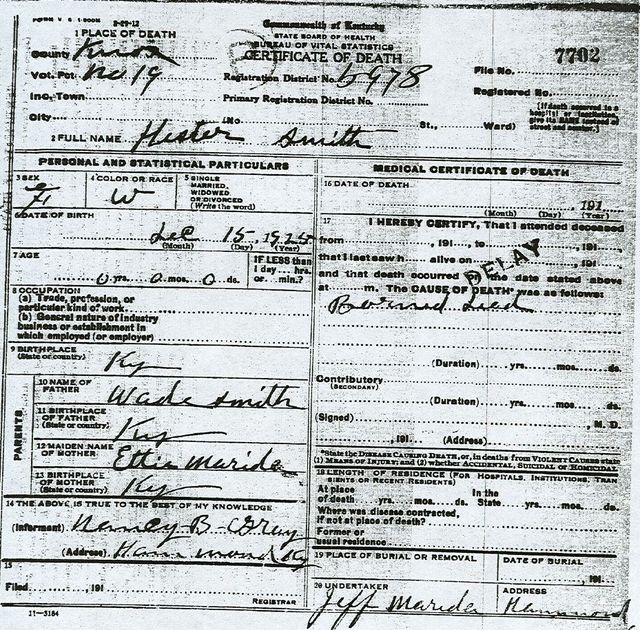 FORM V. S. 1-300M 8-29-12
Commonwealth of Kentucky
STATE BOARD OF HEALTH
BUREAU OF VITAL STATISTICS
CERTIFICATE OF DEATH
1 PLACE OF DEATH
County Knox
Vot. Pct No 19
Inc. Town
City
Registration District No. 5978
Primary Registration District No.
File No. 7702
Registered No.
(If death occurred in a hospital or institution, give its NAME instead of street and number.)
(No. St., Ward)
2 FULL NAME Hester Smith
PERSONAL AND STATISTICAL PARTICULARS
3 SEX F
4 COLOR OR RACE W
5 SINGLE MARRIED, WIDOWED OR DIVORCED (Write the word)
6 DATE OF BIRTH
Dec 15, 1925
(Month) (Day) (Year)
7 AGE
0 yrs. 0 mos. 0 ds.
IF LESS than 1 day... hrs. or... min.?
8 OCCUPATION
(a) Trade, profession, or particular kind of work
(b) General nature of industry business or establishment in which employed (or employer)
9 BIRTHPLACE (State or country) Ky
PARENTS
10 NAME OF FATHER Wade Smith
11 BIRTHPLACE OF FATHER (State or country) Ky
12 MAIDEN NAME OF MOTHER Ettie Marida
13 BIRTHPLACE OF MOTHER (State or country) Ky
14 THE ABOVE IS TRUE TO THE BEST OF MY KNOWLEDGE
(Informant) Nancy B. Gray
(Address) Hammond Ky
15
Filed , 191
REGISTRAR
11-3184
MEDICAL CERTIFICATE OF DEATH
16 DATE OF DEATH
, 191
(Month) (Day) (Year)
17 I HEREBY CERTIFY, That I attended deceased
from , 191 , to , 191 ,
that I last saw h alive on , 191 ,
and that death occurred on the date stated above
at m. The CAUSE OF DEATH* was as follows:
DELAY
Borned Dead
(Duration) yrs. mos. ds.
Contributory (SECONDARY)
(Duration) yrs. mos. ds.
(Signed) , M. D.
, 191 (Address)
*State the DISEASE CAUSING DEATH, or, in deaths from VIOLENT CAUSES state (1) MEANS OF INJURY; and (2) whether ACCIDENTAL, SUICIDAL OR HOMICIDAL
18 LENGTH OF RESIDENCE (FOR HOSPITALS, INSTITUTIONS, TRANSIENTS OR RECENT RESIDENTS)
At place of death yrs. mos. ds. In the State yrs. mos. ds.
Where was disease contracted, if not at place of death?
Former or usual residence
19 PLACE OF BURIAL OR REMOVAL
DATE OF BURIAL
, 191
20 UNDERTAKER
Jeff Marida
ADDRESS
Hammond